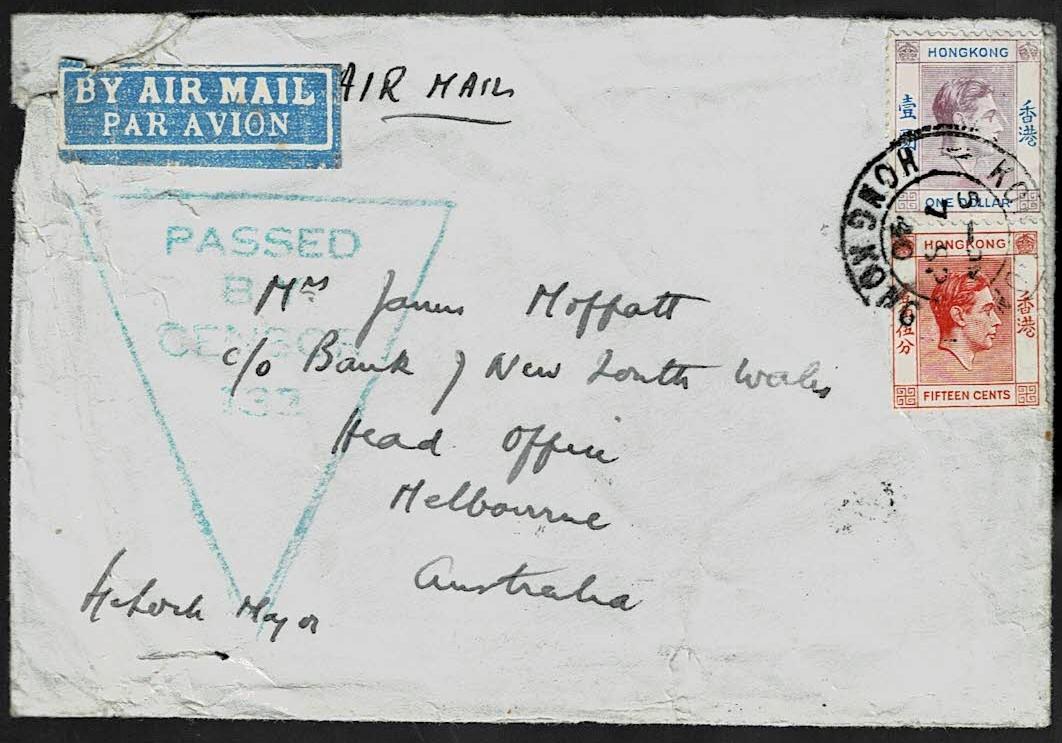 BY AIR MAIL
PAR AVION
AIR MAIL
HONGKONG
壹圓
香港
ONE DOLLAR
HONG KONG
HONGKONG
伍分
香港
FIFTEEN CENTS
PASSED
BY
CENSOR
133
Mrs James Moffatt
c/o Bank of New South Wales
Head Office
Melbourne
Australia
Major